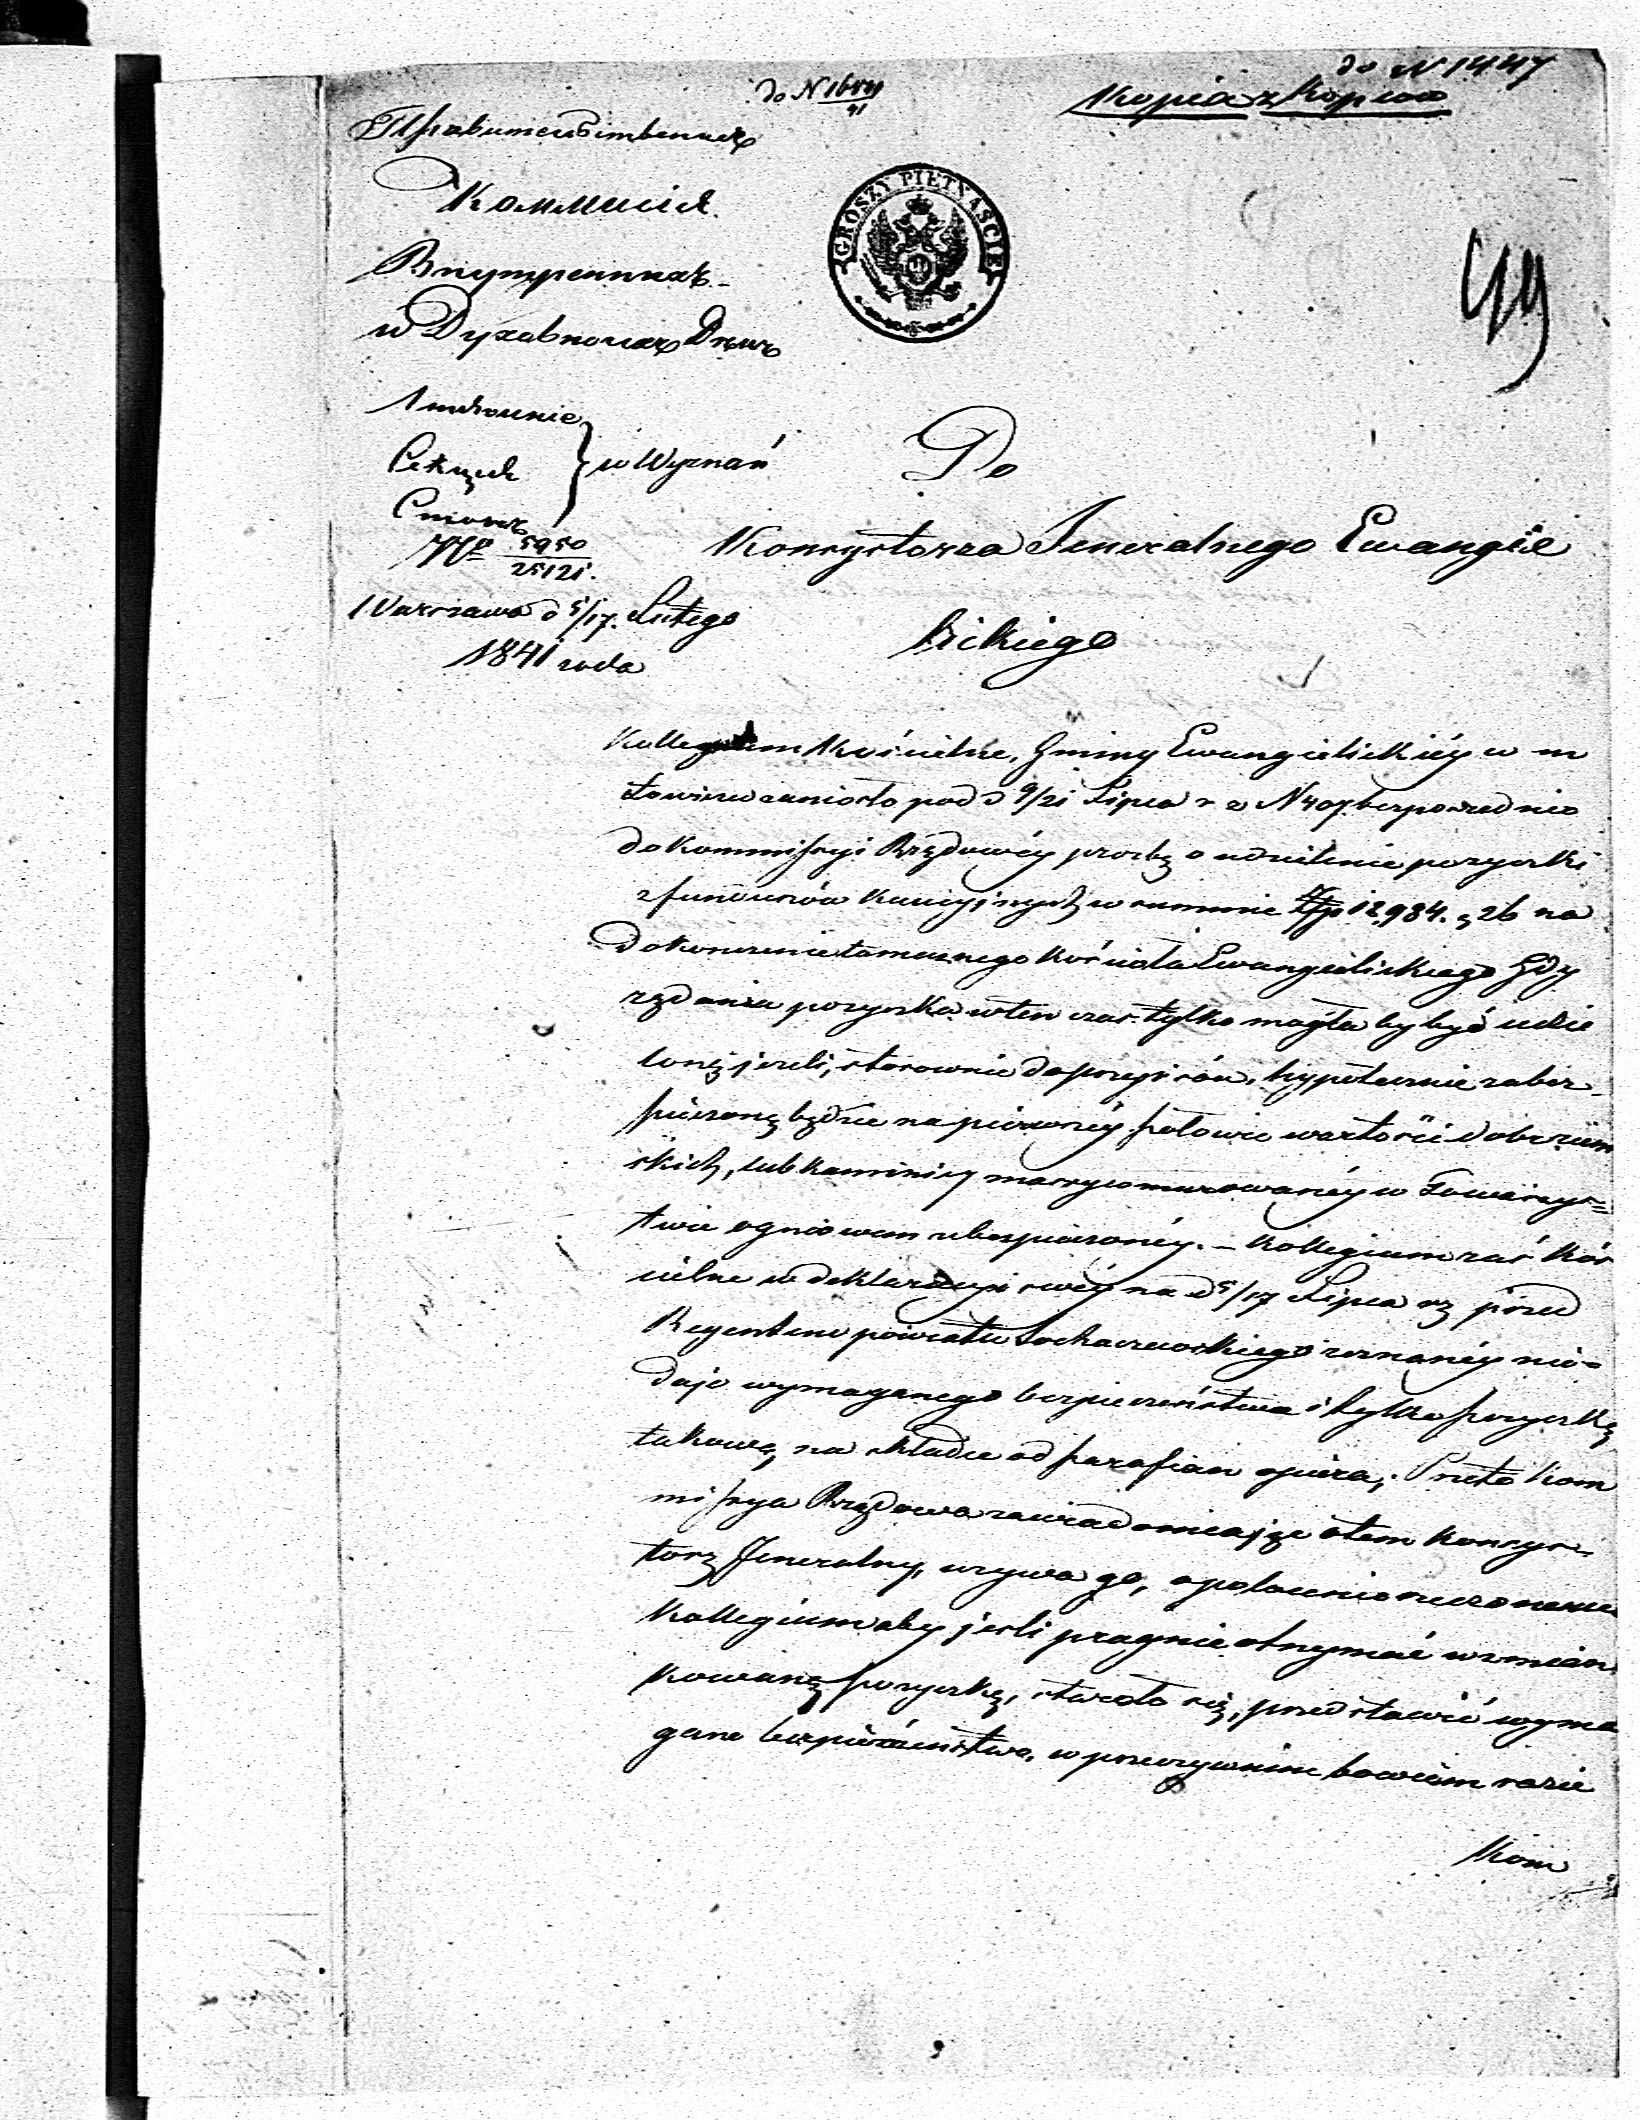 do N 1447
do N 1654/41
Kopia z kopii
Правительственная
Коммисія
Внутреннихъ
и Духовныхъ Дѣлъ
GROSZY PIETNAŚCIE
49
w Wyznań
No 5950/25121.
Warszawa d 5/17. Lutego
1841 roda
Do
Konsystorza Jeneralnego Ewangie
lickiego
Kollegium Kościelne, Gminy Ewangielickiéy w m
Łowiczu zaniosło pod d 9/21 Lipca r z N 407 bezpośrednio
do Kommissyi Rządowéy prośbę o udzielenie pożyczki
z funduszów kaucyjnych w summie Złp 12,984. g 26 na
dokończenie tamecznego kościoła Ewangielickiego Gdy
żądania pożyczka wten czas tylko mogła by być udzie
loną jeżeli, stosownie do przepisów, hypotecznie zabez-
pieczoną będzie na pierwszéy połowie wartości dobr ziem
skich, lub kamienicy massyw murowanéy w Towarzys=
twie ogniowem ubezpieczonéy. – Kollegium zaś Koś
cielne w deklaracyi swéy na d 5/17 Lipca rz przed
Regentem powiatu Sochaczewskiego zeznanéy nie-
daje wymaganego bezpieczeństwa i tylko pożyczkę
takową, na składce od parafian opiera; Przeto Kom
missya Rządowa zawiadomiając otem Konsys-
torz Jeneralny, wzywa go, o polecenie rzeczonemu
Kollegium aby jeśli pragnie otrzymać wzmian
kowaną pożyczkę, starało się, przedstawić wyma
gane bezpieczeństwo, w przeciwnim bowiem razie
Kom